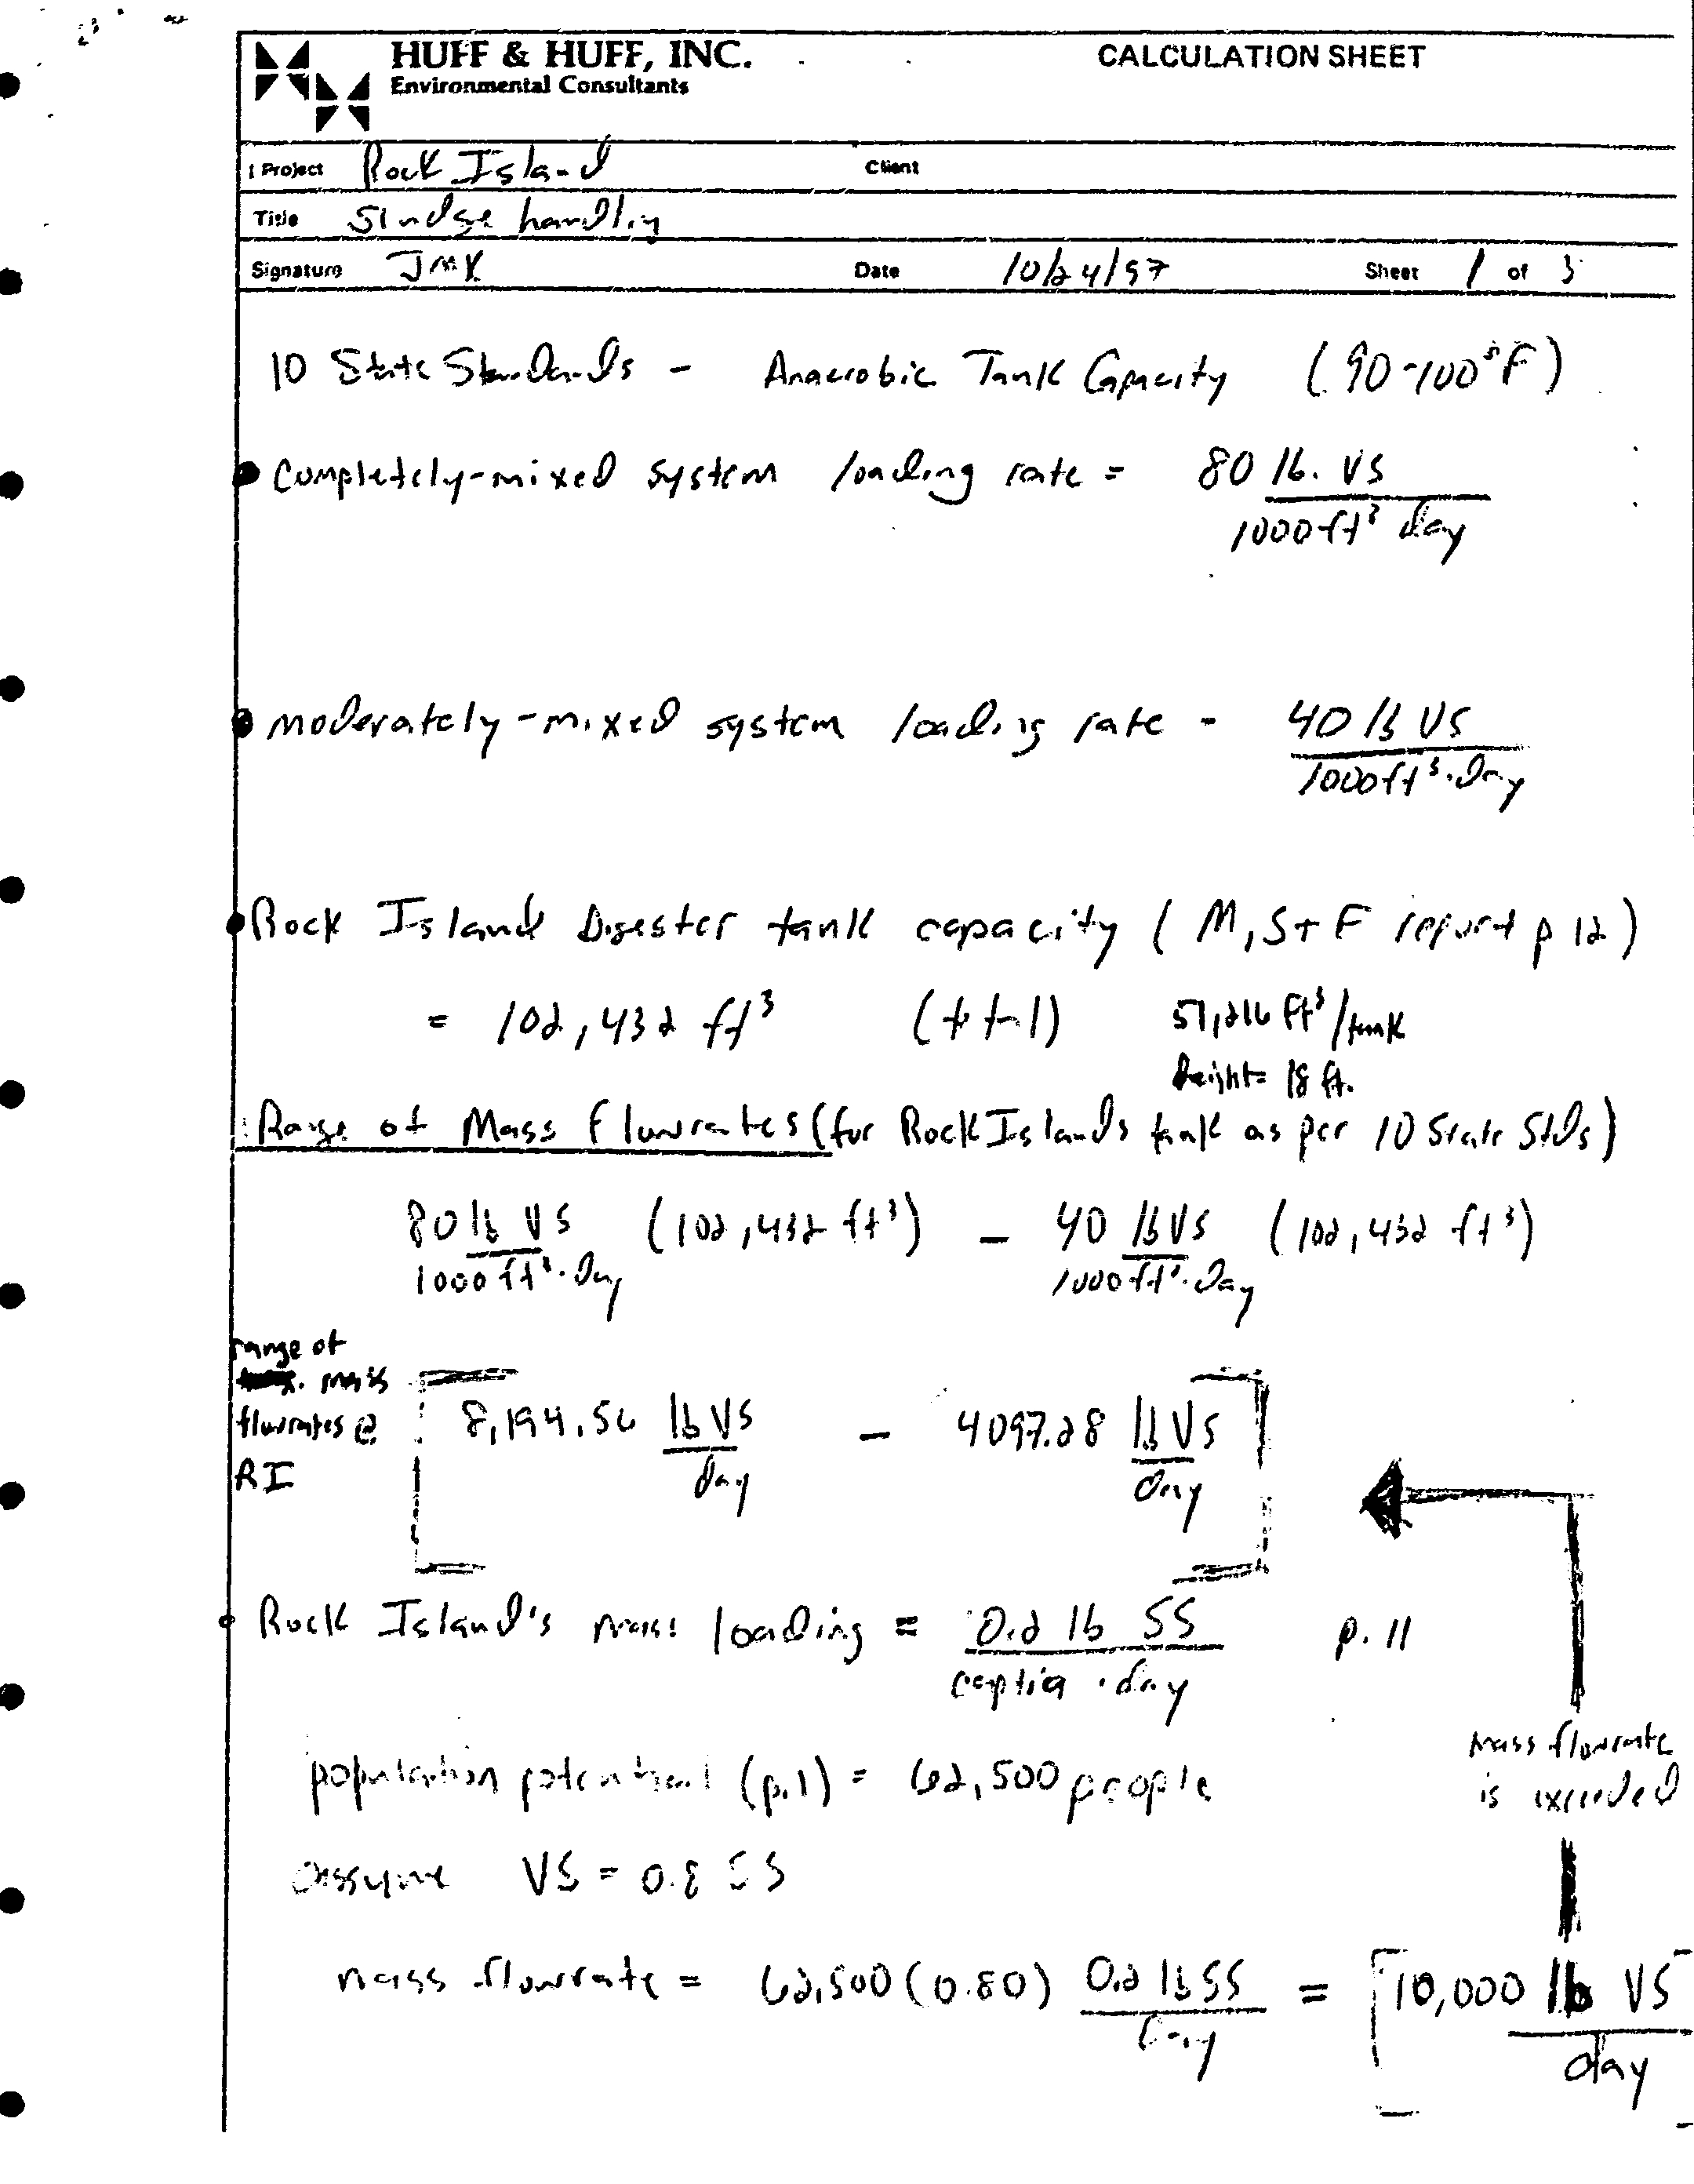 HUFF & HUFF, INC.
Environmental Consultants
CALCULATION SHEET
Project Rock Island Client
Title Sludge handling
Signature JMK Date 10/24/97 Sheet 1 of 3
10 State Standards - Anaerobic Tank Capacity (90-100°F)
Completely-mixed system loading rate = 80 lb. VS
1000 ft³ day
moderately-mixed system loading rate - 40 lb VS
1000 ft³·day
Rock Island Digester tank capacity (M,S+F report p 12)
= 102,432 ft³ (total) 51,216 ft³/tank
height= 18 ft.
Range of Mass Flowrates (for Rock Islands tank as per 10 State Stds)
80 lb VS (102,432 ft³) - 40 lb VS (102,432 ft³)
1000 ft³·day 1000 ft³·day
range of
mass
flowrates @
RI
8,194.56 lb VS - 4097.28 lb VS
day day
Rock Island's mass loading = 0.2 lb SS p. 11
captia · day
population potential (p.1) = 62,500 people
mass flowrate
is exceeded
assume VS = 0.8 SS
mass flowrate = 62,500 (0.80) 0.2 lb SS = 10,000 lb VS
day day